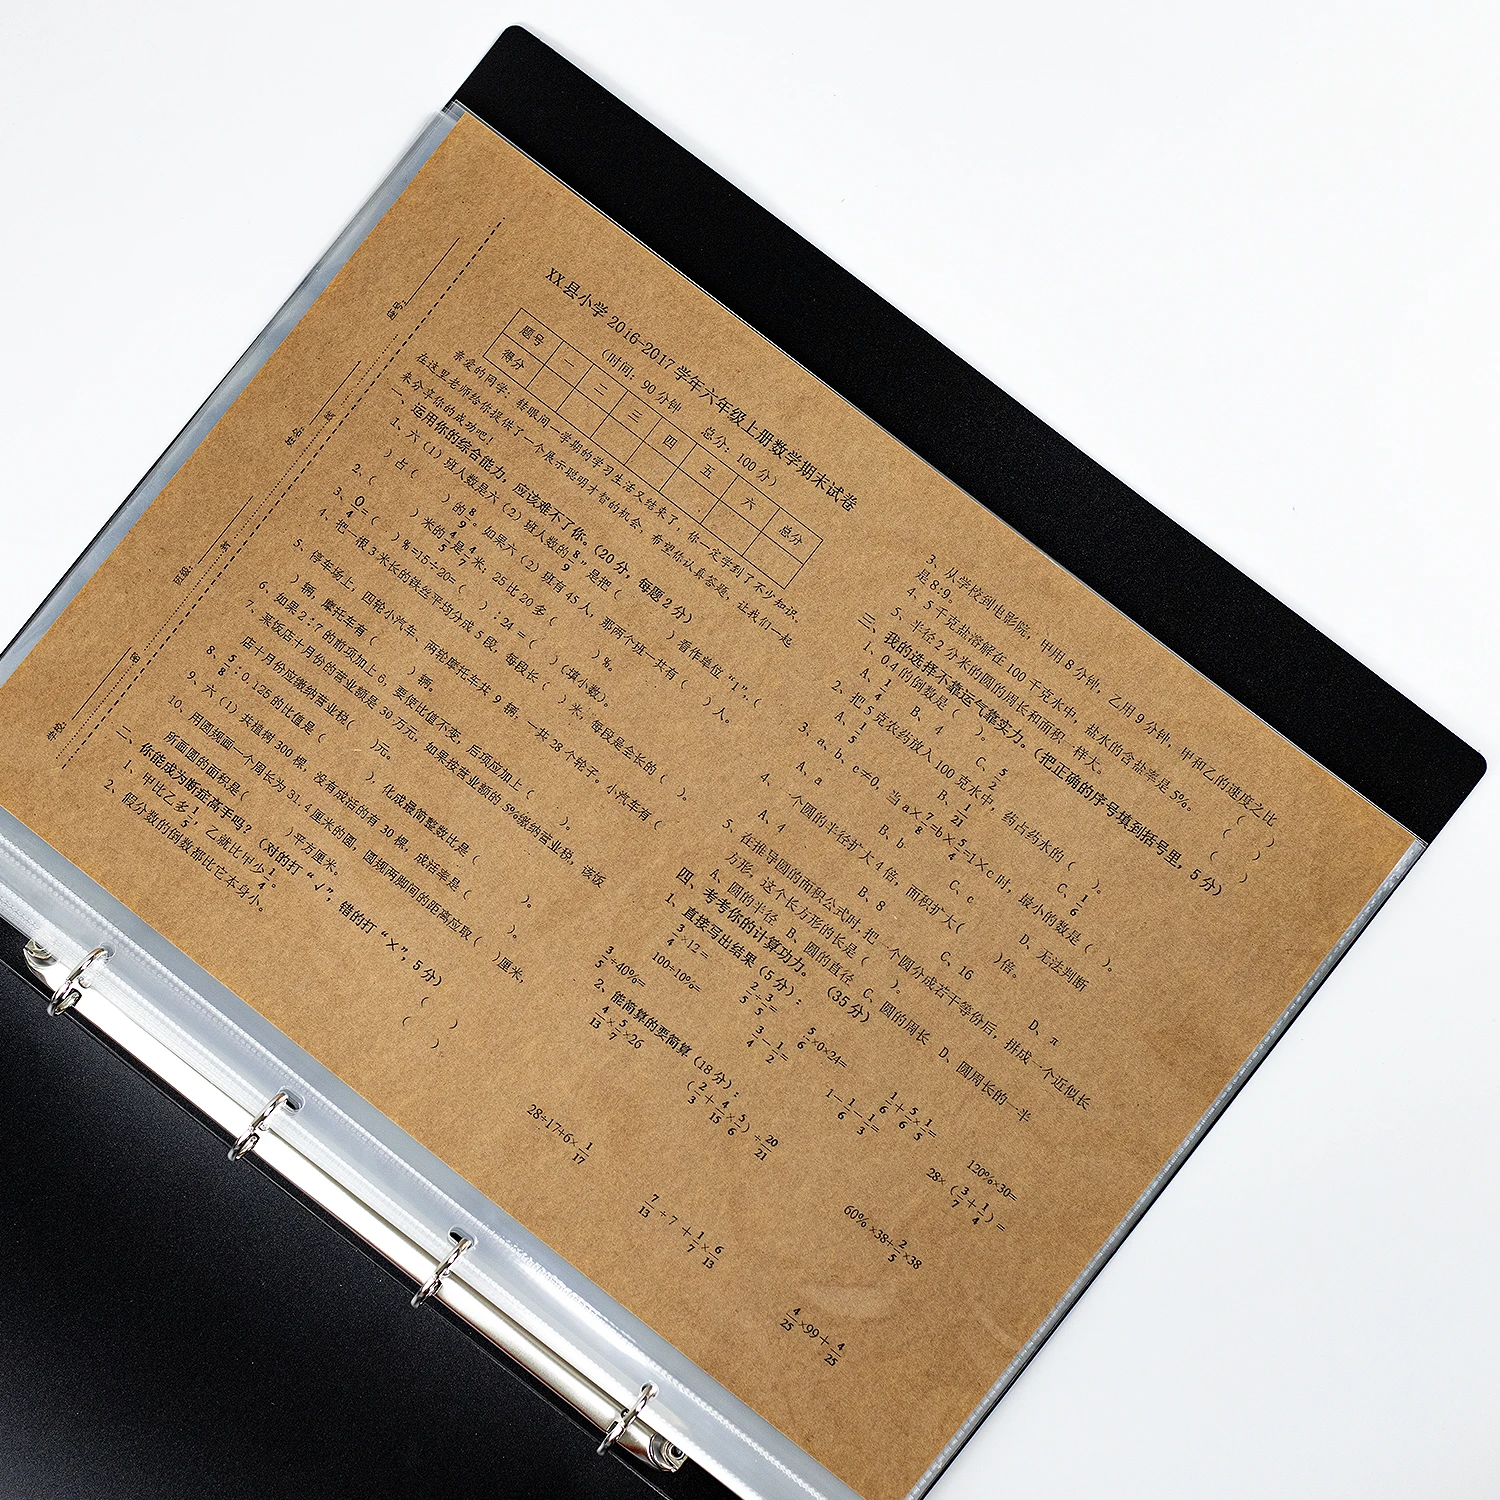 XX 县小学 2016-2017 学年六年级上册数学期末试卷
（时间：90 分钟 总分：100 分）
题号 一 二 三 四 五 六 总分
得分
亲爱的同学：转眼间一学期的学习生活又结束了，你一定学到了不少知识，
在这里老师给你提供了一个展示聪明才智的机会，希望你认真答题，让我们一起
来分享你的成功吧！
一、运用你的综合能力，应该难不了你。（20 分，每题 2 分）
1、六（1）班人数是六（2）班人数的 8/9 ” 是把（ ）看作单位 “1”，（
）占（ ）的 8/9 。如果六（2）班有 45 人，那两个班一共有（ ）人。
2、（ ）米的 4/5 是 4/7 米；25 比 20 多（ ）%。
3、 0/4 =（ ）%=15÷20=（ ）：24 =（ ）（填小数）。
4、把一根 3 米长的铁丝平均分成 5 段，每段长（ ）米，每段是全长的（ ）。
5、停车场上，四轮小汽车、两轮摩托车共 9 辆，一共 28 个轮子。小汽车有（
）辆，摩托车有（ ）辆。
6、如果 2：7 的前项加上 6，要使比值不变，后项应加上（ ）。
7、某饭店十月份的营业额是 30 万元，如果按营业额的 5%缴纳营业税，该饭
店十月份应缴纳营业税（ ）元。
8、 5/8 ：0.125 的比值是（ ），化成最简整数比是（ ）。
9、六（1）共植树 300 棵，没有成活的有 30 棵，成活率是（ ）。
10、用圆规画一个周长为 31.4 厘米的圆，圆规两脚间的距离应取（ ）厘米，
所画圆的面积是（ ）平方厘米。
二、你能成为断症高手吗？（对的打 “√”，错的打 “×”，5 分）
1、甲比乙多 1/5 ，乙就比甲少 1/4 。 （ ）
2、假分数的倒数都比它本身小。 （ ）
3、从学校到电影院，甲用 8 分钟，乙用 9 分钟，甲和乙的速度之比
是 8:9。 （ ）
4、5 千克盐溶解在 100 千克水中，盐水的含盐率是 5%。 （ ）
5、半径 2 分米的圆的周长和面积一样大。 （ ）
三、我的选择不靠运气靠实力。（把正确的序号填到括号里，5 分）
1、0.4 的倒数是（ ）。
A、 1/4 B、 4 C、 5/2
2、把 5 克农药放入 100 克水中，药占药水的（ ）。
A、 1/5 B、 1/21 C、 1/6
3、a、b、c≠0，当 a× 7/8 =b× 5/4 =1×c 时，最小的数是（ ）。
A、a B、b C、c D、无法判断
4、一个圆的半径扩大 4 倍，面积扩大（ ）倍。
A、4 B、8 C、16 D、π
5、在推导圆的面积公式时，把一个圆分成若干等份后，拼成一个近似长
方形，这个长方形的长是（ ）。
A、圆的半径 B、圆的直径 C、圆的周长 D、圆周长的一半
四、考考你的计算功力。（35 分）
1、直接写出结果（5 分）：
3/4 ×12= 2/5 ÷ 3/5 = 5/6 ×0×24= 1/6 + 5/6 × 1/5 = 120%×30=
3/5 ÷40%= 100÷10%= 3/4 − 1/2 = 1− 1/6 − 1/3 = 28×（ 3/7 + 1/4 ）=
2、能简算的要简算（18 分）：
4/13 × 5/7 ×26 （ 2/3 + 4/15 × 5/6 ）÷ 20/21 60% ×38+ 2/5 ×38
28÷17+6× 1/17 7/13 ÷7 + 1/7 × 6/13 4/25 ×99 + 4/25
学校：
班级：
姓名：
座号：
密
封
线